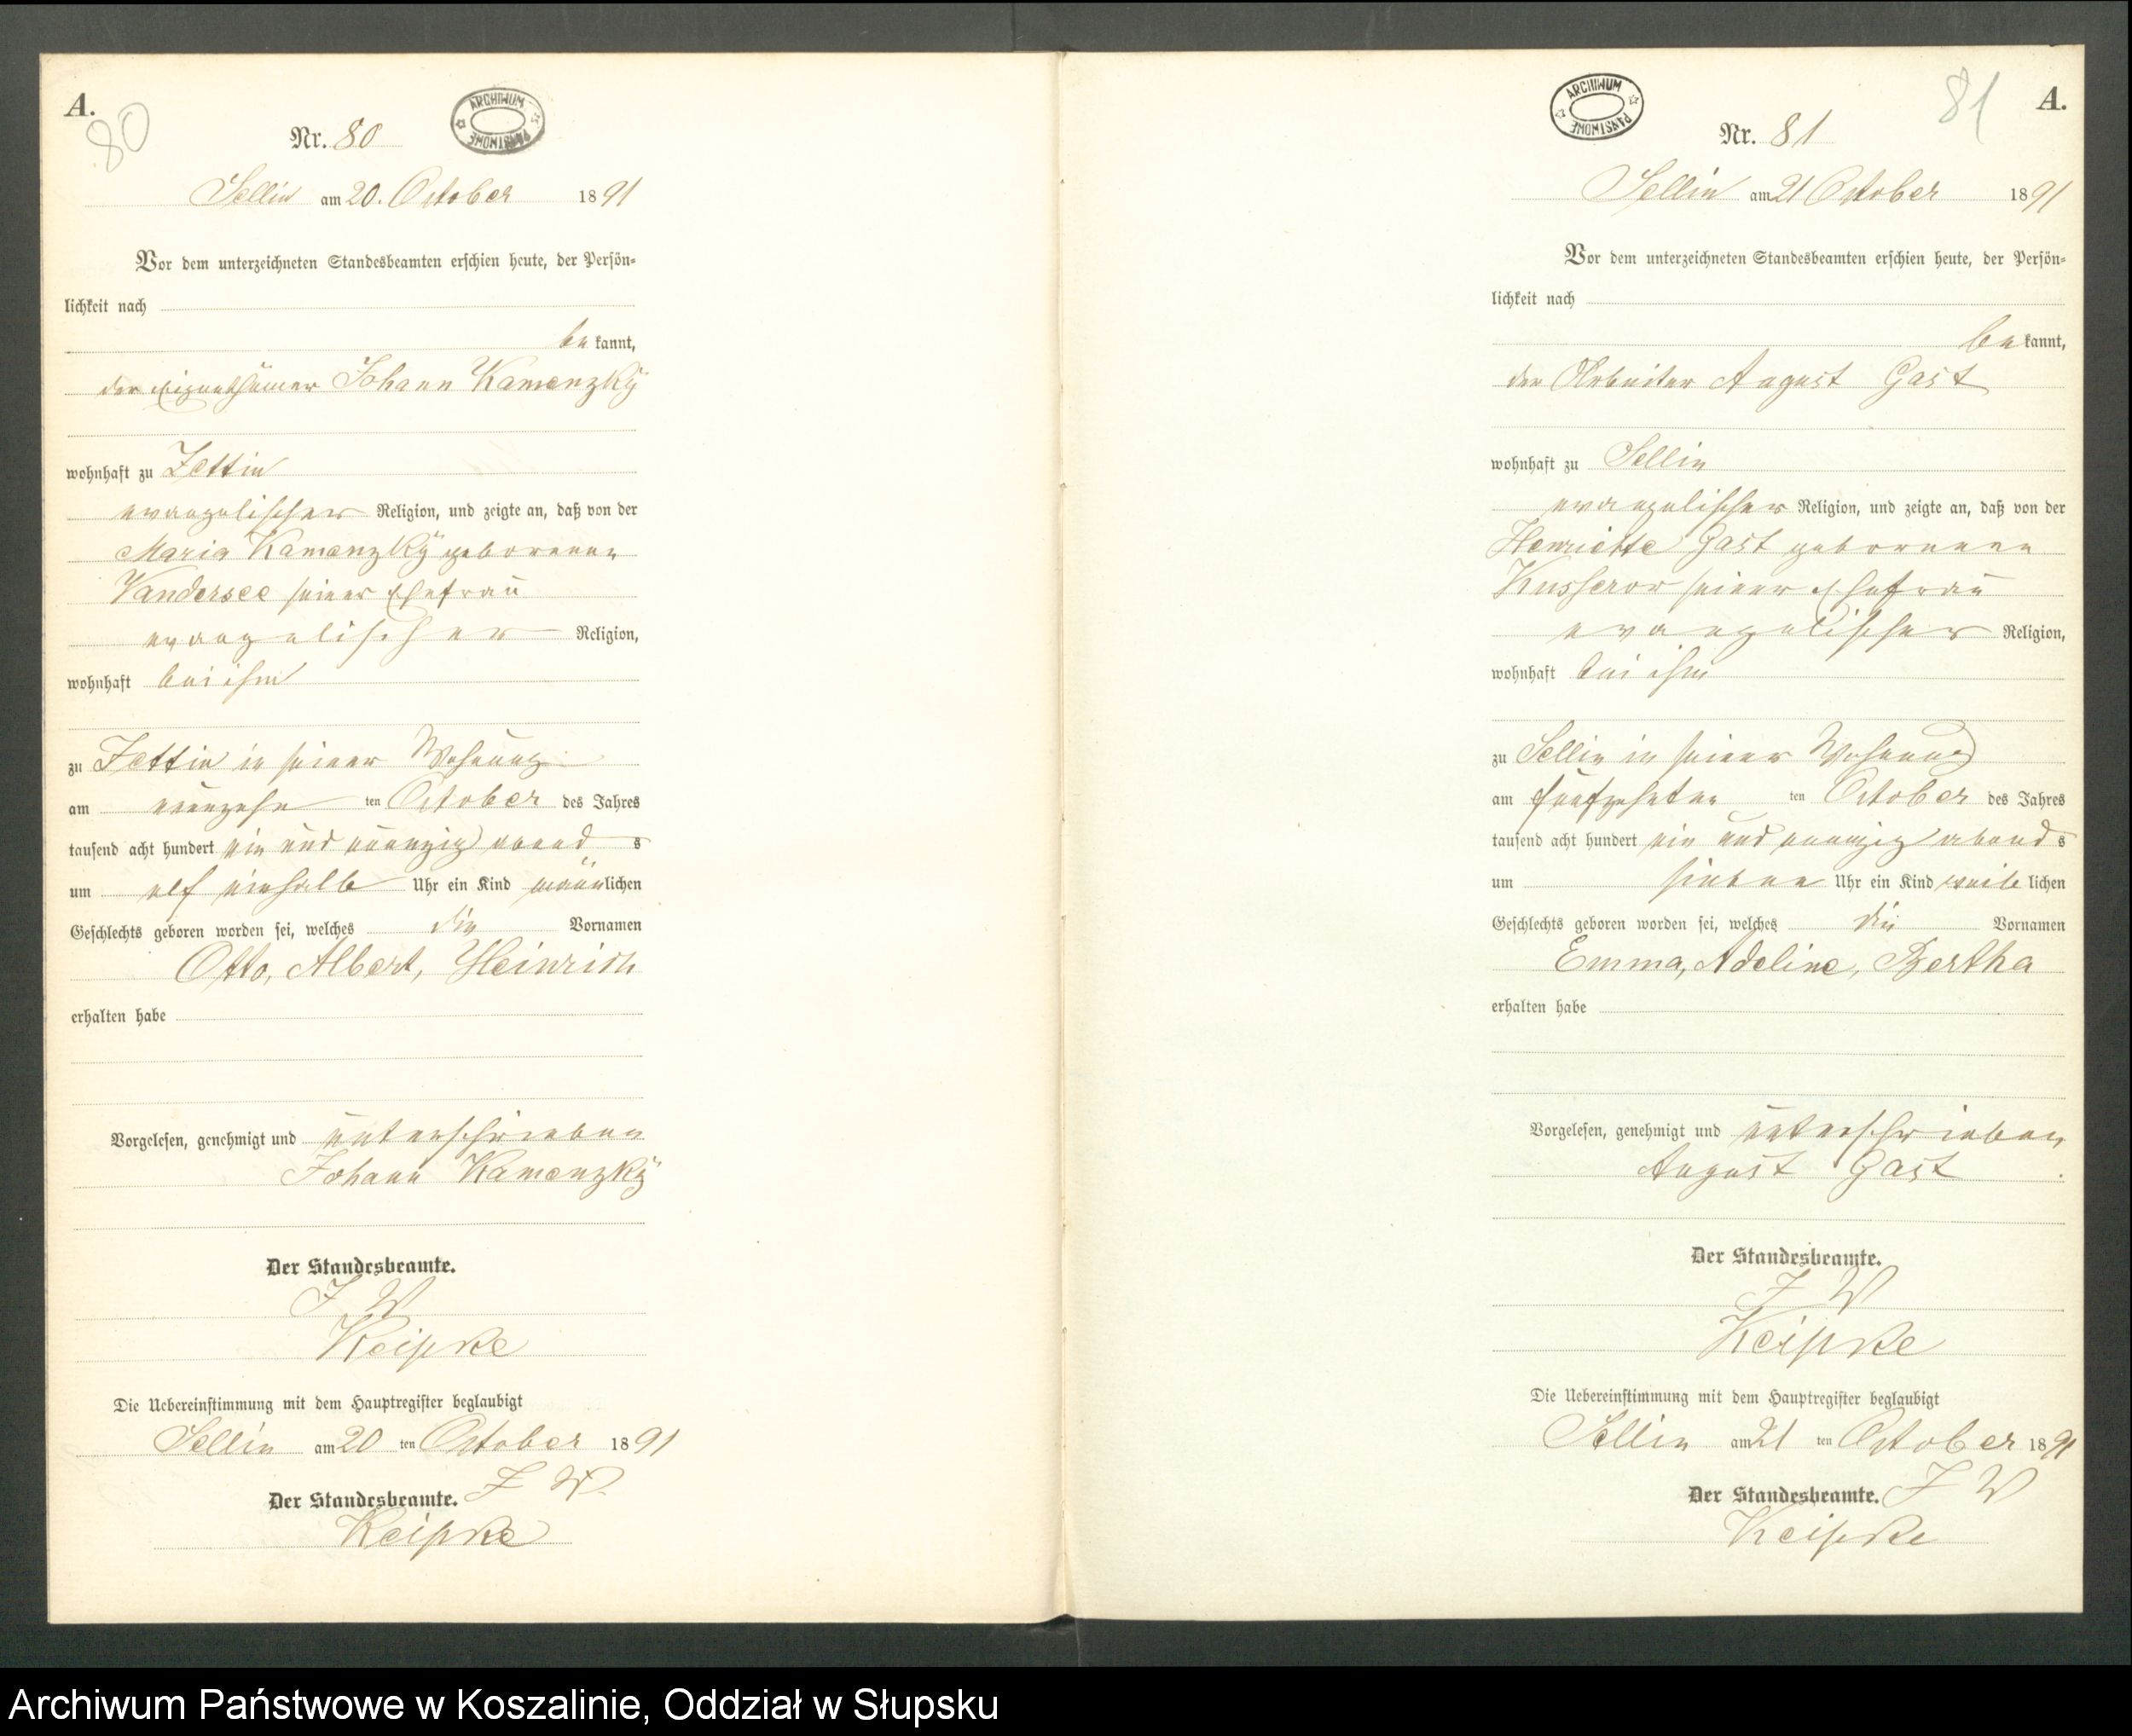 A.
80
ARCHIWUM PAŃSTWOWE
Nr. 80
Sellin am 20. October 1891
Vor dem unterzeichneten Standesbeamten erschien heute, der Persön-
lichkeit nach
be kannt,
der Eigenthümer Johann Kamenzky
wohnhaft zu Zettin
evangelischer Religion, und zeigte an, daß von der
Maria Kamenzky geborenen
Vandersee seiner Ehefrau
evangelischer Religion,
wohnhaft bei ihm
zu Zettin in seiner Wohnung
am neunzehn ten October des Jahres
tausend acht hundert ein und neunzig abend s
um elf einhalb Uhr ein Kind männlichen
Geschlechts geboren worden sei, welches die Vornamen
Otto, Albert, Heinrich
erhalten habe
Vorgelesen, genehmigt und unterschrieben
Johann Kamenzky
Der Standesbeamte.
J W
Keipke
Die Uebereinstimmung mit dem Hauptregister beglaubigt
Sellin am 20 ten October 1891
Der Standesbeamte. J W.
Keipke
81
A.
ARCHIWUM PAŃSTWOWE
Nr. 81
Sellin am 21 October 1891
Vor dem unterzeichneten Standesbeamten erschien heute, der Persön-
lichkeit nach
be kannt,
der Arbeiter August Gast
wohnhaft zu Sellin
evangelischer Religion, und zeigte an, daß von der
Henriette Gast geborenen
Kusserow seiner Ehefrau
evangelischer Religion,
wohnhaft bei ihm
zu Sellin in seiner Wohnung
am fünfzehnten ten October des Jahres
tausend acht hundert ein und neunzig abend s
um sieben Uhr ein Kind weib lichen
Geschlechts geboren worden sei, welches die Vornamen
Emma, Adeline, Bertha
erhalten habe
Vorgelesen, genehmigt und unterschrieben
August Gast
Der Standesbeamte.
J W
Keipke
Die Uebereinstimmung mit dem Hauptregister beglaubigt
Sellin am 21 ten October 1891
Der Standesbeamte. J W
Keipke
Archiwum Państwowe w Koszalinie, Oddział w Słupsku